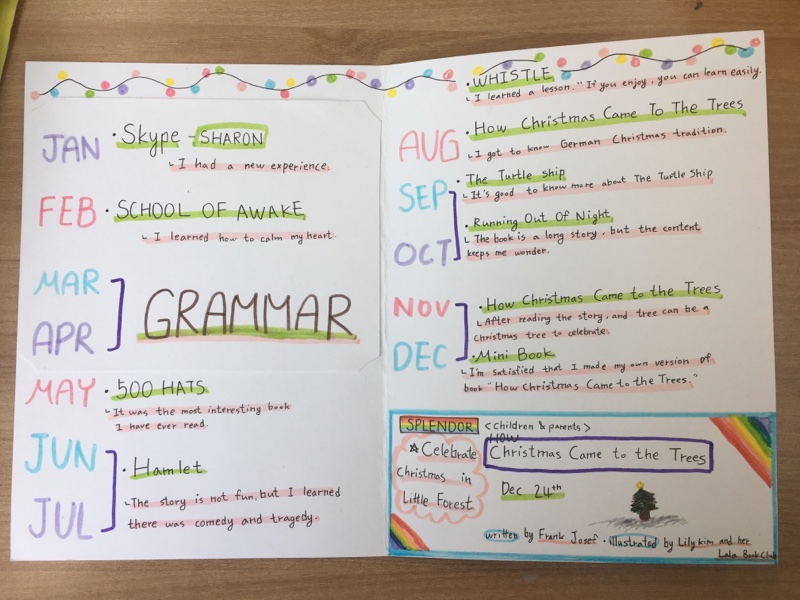 JAN
· Skype - SHARON
I had a new experience.
FEB
· SCHOOL OF AWAKE
I learned how to calm my heart.
MAR
APR
GRAMMAR
MAY
· 500 HATS
It was the most interesting book
I have ever read.
JUN
JUL
· Hamlet
The story is not fun, but I learned
there was comedy and tragedy.
· WHISTLE
I learned a lesson. "If you enjoy, you can learn easily.
AUG
· How Christmas Came To The Trees
I got to know German Christmas tradition.
SEP
· The Turtle ship
It's good to know more about The Turtle Ship
OCT
· Running Out Of Night
The book is a long story, but the content
keeps me wonder.
NOV
· How Christmas Came to the Trees
After reading the story, and tree can be a
Christmas tree to celebrate.
DEC
· Mini Book
I'm satisfied that I made my own version of
book "How Christmas Came to the Trees."
SPLENDOR <children & parents>
☆Celebrate
Christmas in
Little Forest
HOW
Christmas Came to the Trees
Dec 24th
written by Frank Josef · illustrated by Lily kim and her
Lala Book Club